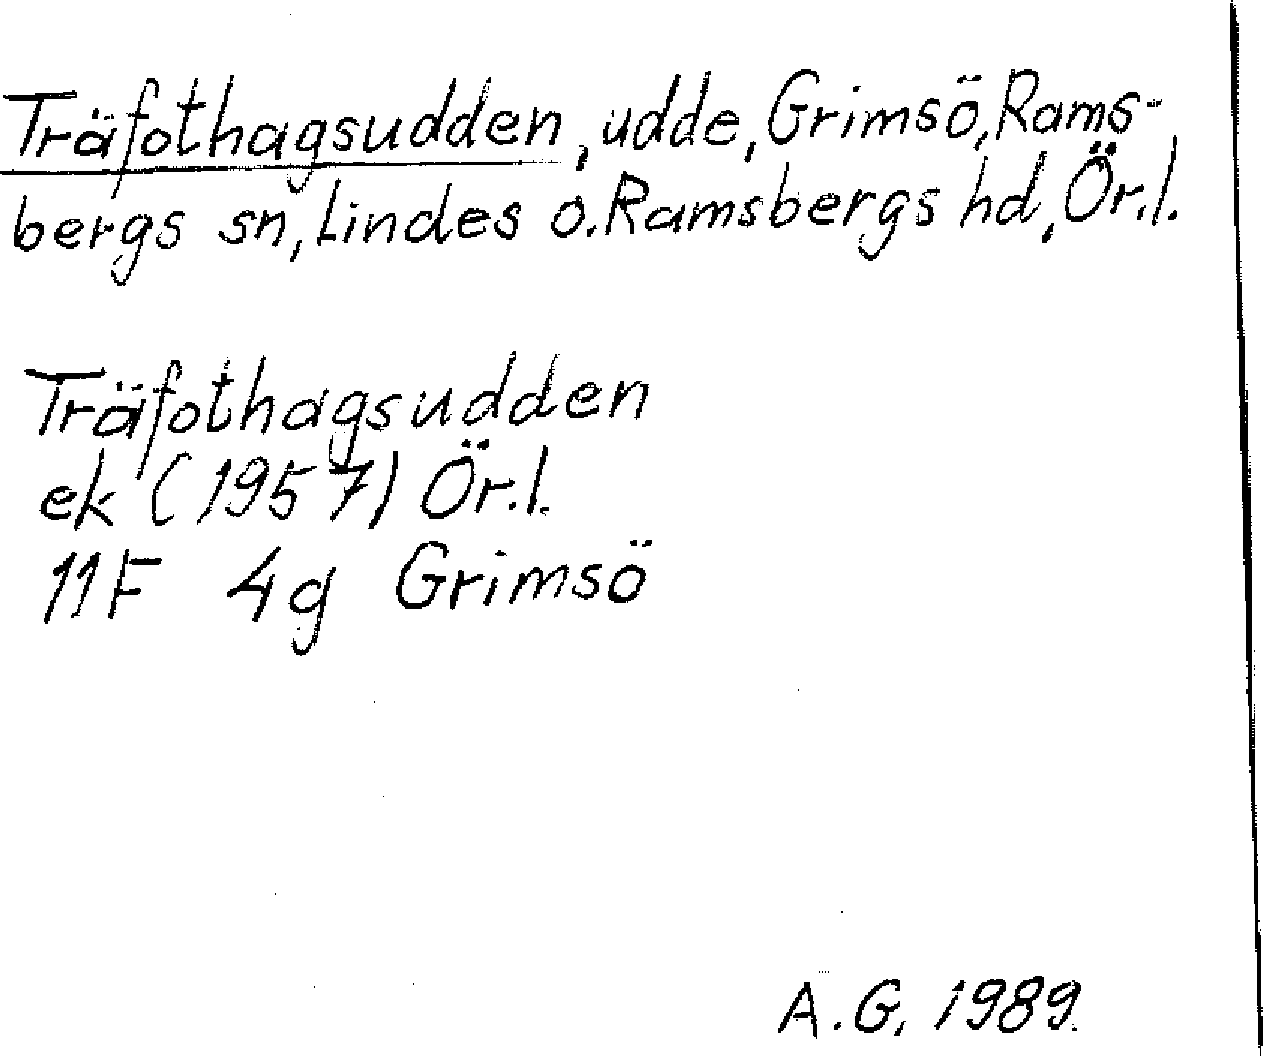 Träfothagsudden, udde, Grimsö, Rams-
bergs sn, Lindes o. Ramsbergs hd, Ör.l.
Träfothagsudden
ek (1957) Ör.l.
11F 4g Grimsö
A.G. 1989.